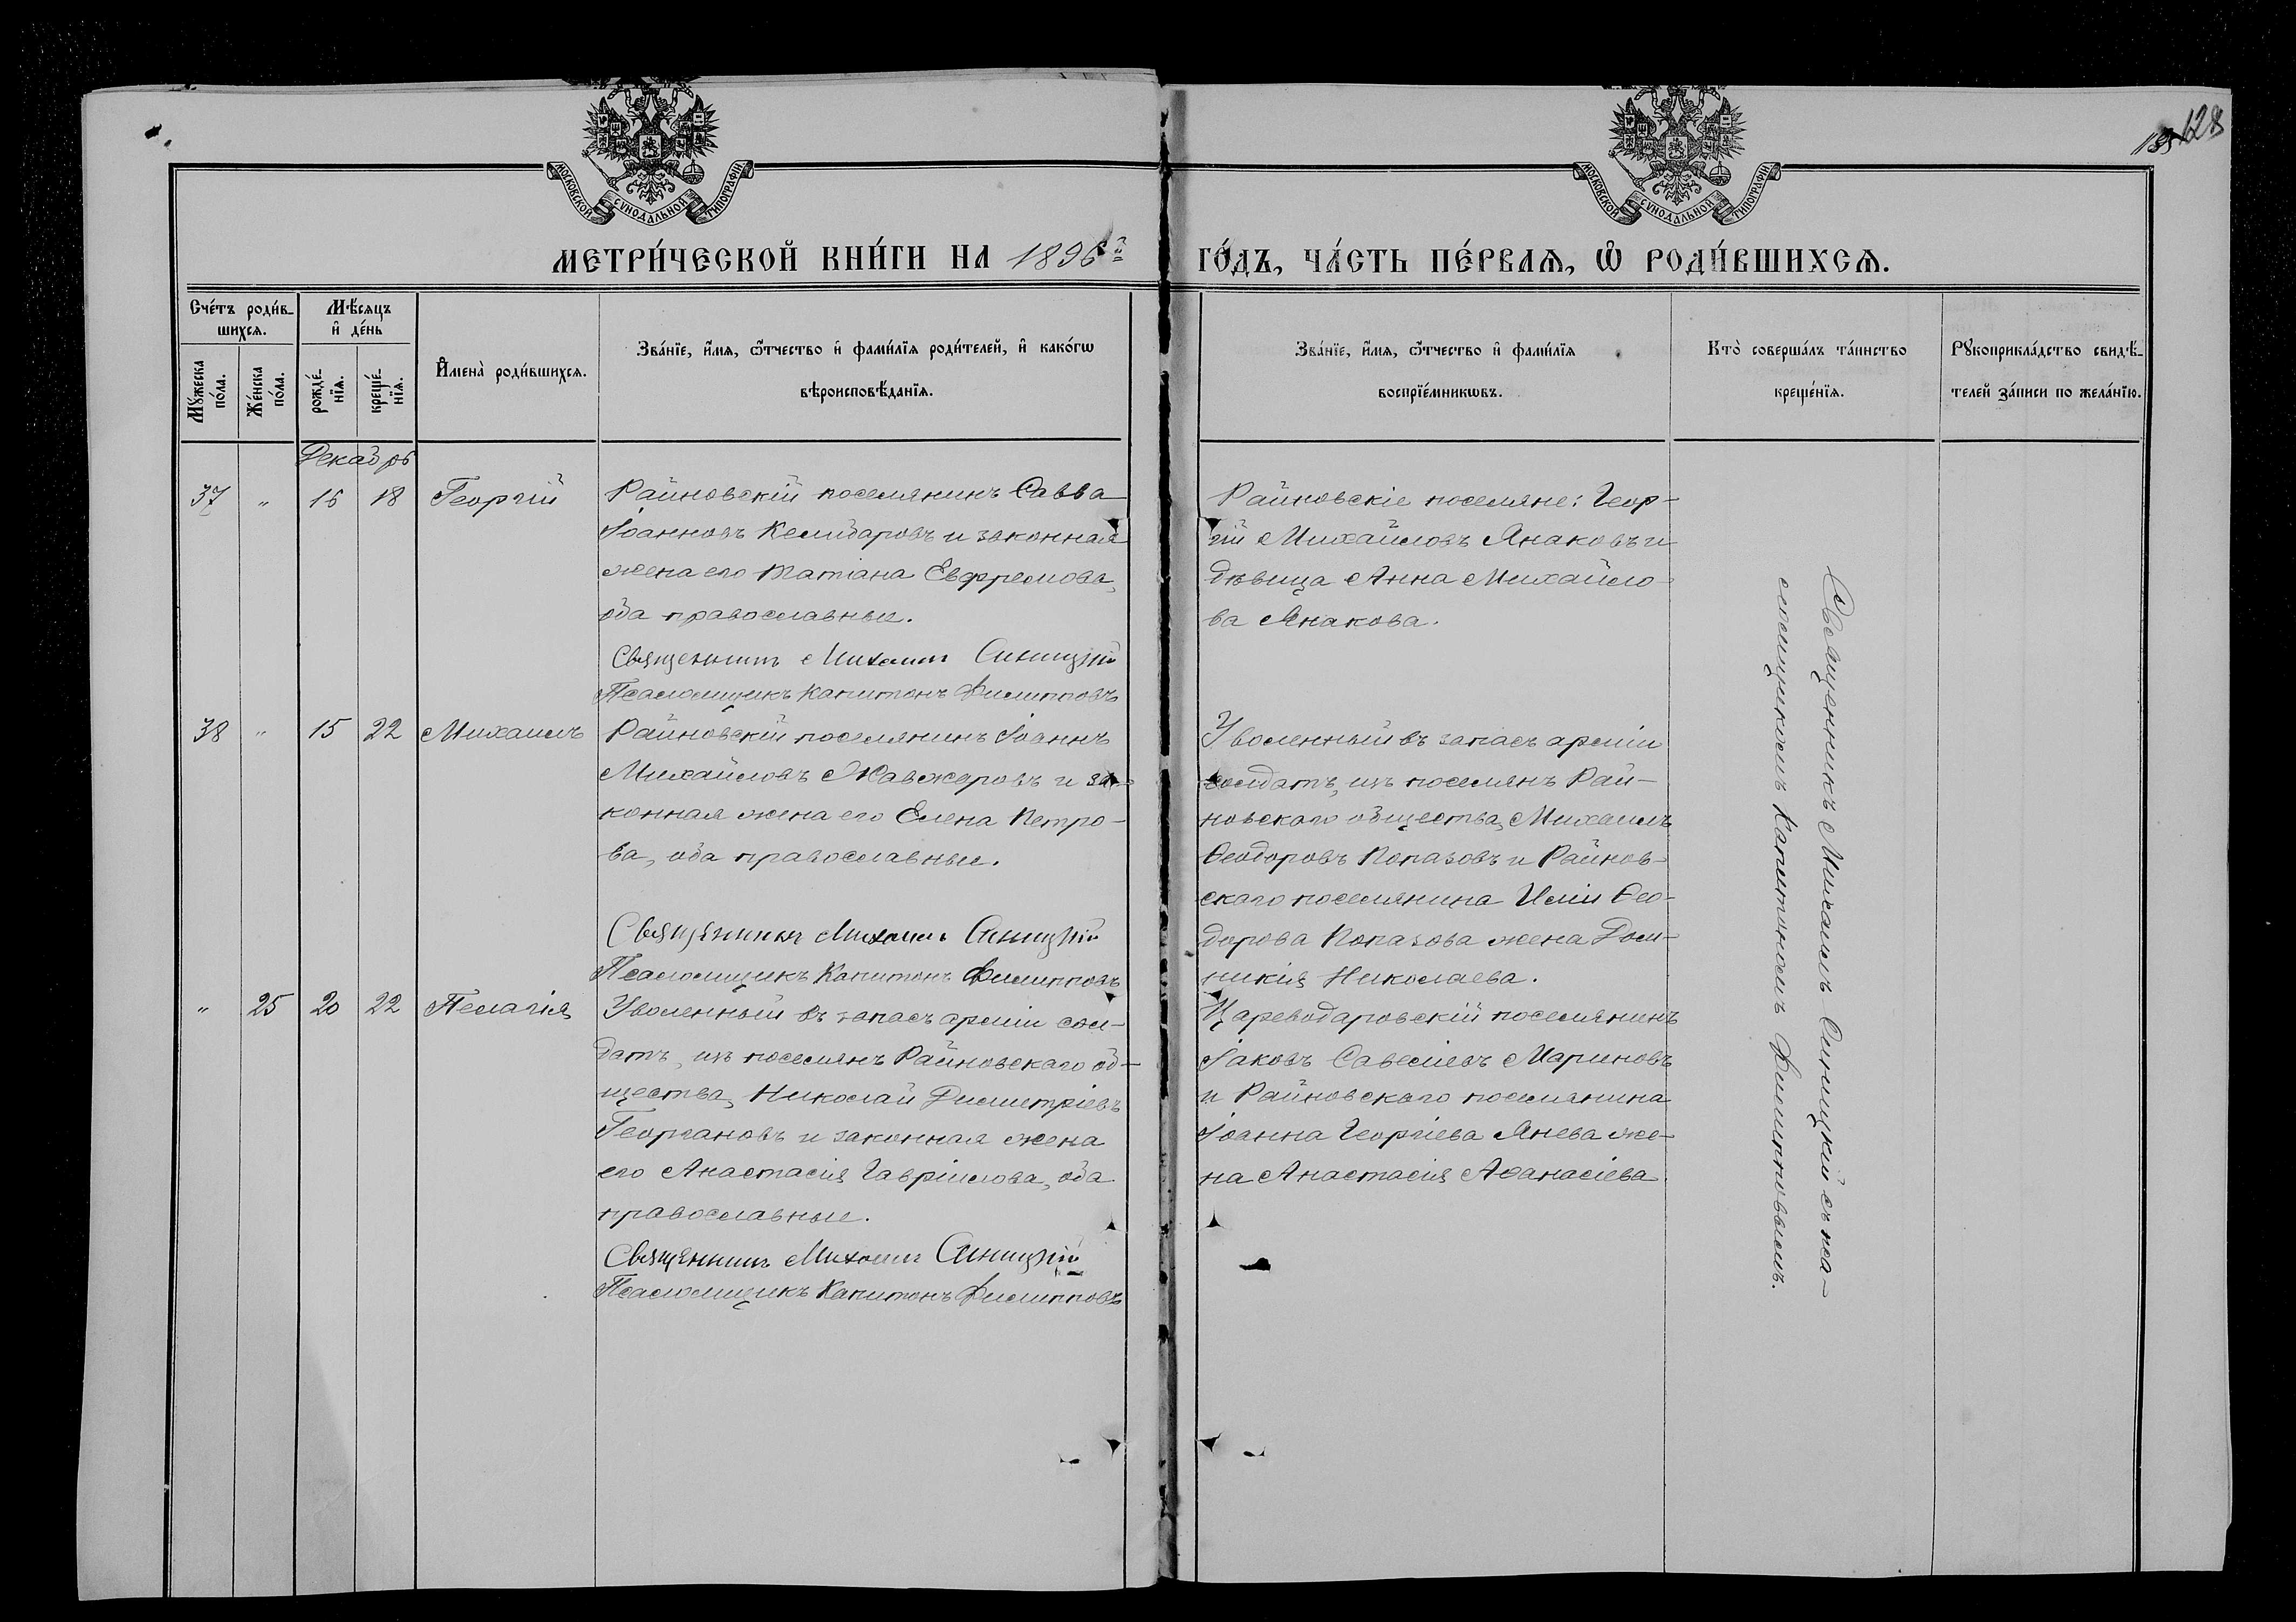 135 128
МОСКОВСКОЙ СѴНОДАЛЬНОЙ ТИПОГРАФІИ
МОСКОВСКОЙ СѴНОДАЛЬНОЙ ТИПОГРАФІИ
МЕТРИ́ЧЕСКОЙ КНИ́ГИ НА 1896й ГО́ДЪ, ЧА́СТЬ ПЕ́РВАѦ, Ѡ҆ РОДИ́ВШИХСѦ.
Сче́тъ роди́в-
шихсѧ.
Мꙋ́жеска
по́ла.
Же́нска
по́ла.
Мѣ́сѧцъ
и҆ де́нь
рожде́-
нїѧ.
креще́-
нїѧ.
И҆мена̀ роди́вшихсѧ.
Зва́нїе, и҆́мѧ, ѻ҆́тчество и҆ фами́лїѧ роди́телей, и҆ како́гѡ
вѣроисповѣ́данїѧ.
Зва́нїе, и҆́мѧ, ѻ҆́тчество и҆ фами́лїѧ
воспрїе́мникѡвъ.
Кто̀ соверша́лъ та́инство
креще́нїѧ.
Рꙋкоприкла́дство свидѣ́-
телей за́писи по жела́нїю.
Декабрь
37 " 16 18 Георгій
Райновскій поселянинъ Савва
Іоанновъ Келидаровъ и законная
жена его Татіана Евфремова,
оба православные.
Священникъ Михаилъ Синицкій
Псаломщикъ Капитонъ Филипповъ
Райновскіе поселяне: Геор-
гій Михайловъ Янаковъ и
дѣвица Анна Михайло-
ва Янакова.
38 " 15 22 Михаилъ
Райновскій поселянинъ Іоаннъ
Михайловъ Жавжаровъ и за-
конная жена его Елена Петро-
ва, оба православные.
Священникъ Михаилъ Синицкій
Псаломщикъ Капитонъ Филипповъ
Уволенный въ запасъ арміи
солдатъ, изъ поселянъ Рай-
новскаго общества, Михаилъ
Ѳеодоровъ Попазовъ и Райнов-
скаго поселянина Иліи Ѳео-
дорова Попазова жена Дом-
никія Николаева.
" 25 20 22 Пелагія
Уволенный въ запасъ арміи сол-
датъ, изъ поселянъ Райновскаго об-
щества, Николай Димитріевъ
Георгановъ и законная жена
его Анастасія Гавріилова, оба
православные.
Священникъ Михаилъ Синицкій
Псаломщикъ Капитонъ Филипповъ
Цареводаровскій поселянинъ
Іаковъ Савеліевъ Мариновъ
и Райновскаго поселянина
Іоанна Георгіева Янева же-
на Анастасія Аѳанасіева.
Священникъ Михаилъ Синицкій съ пса-
ломщикомъ Капитономъ Филипповымъ.